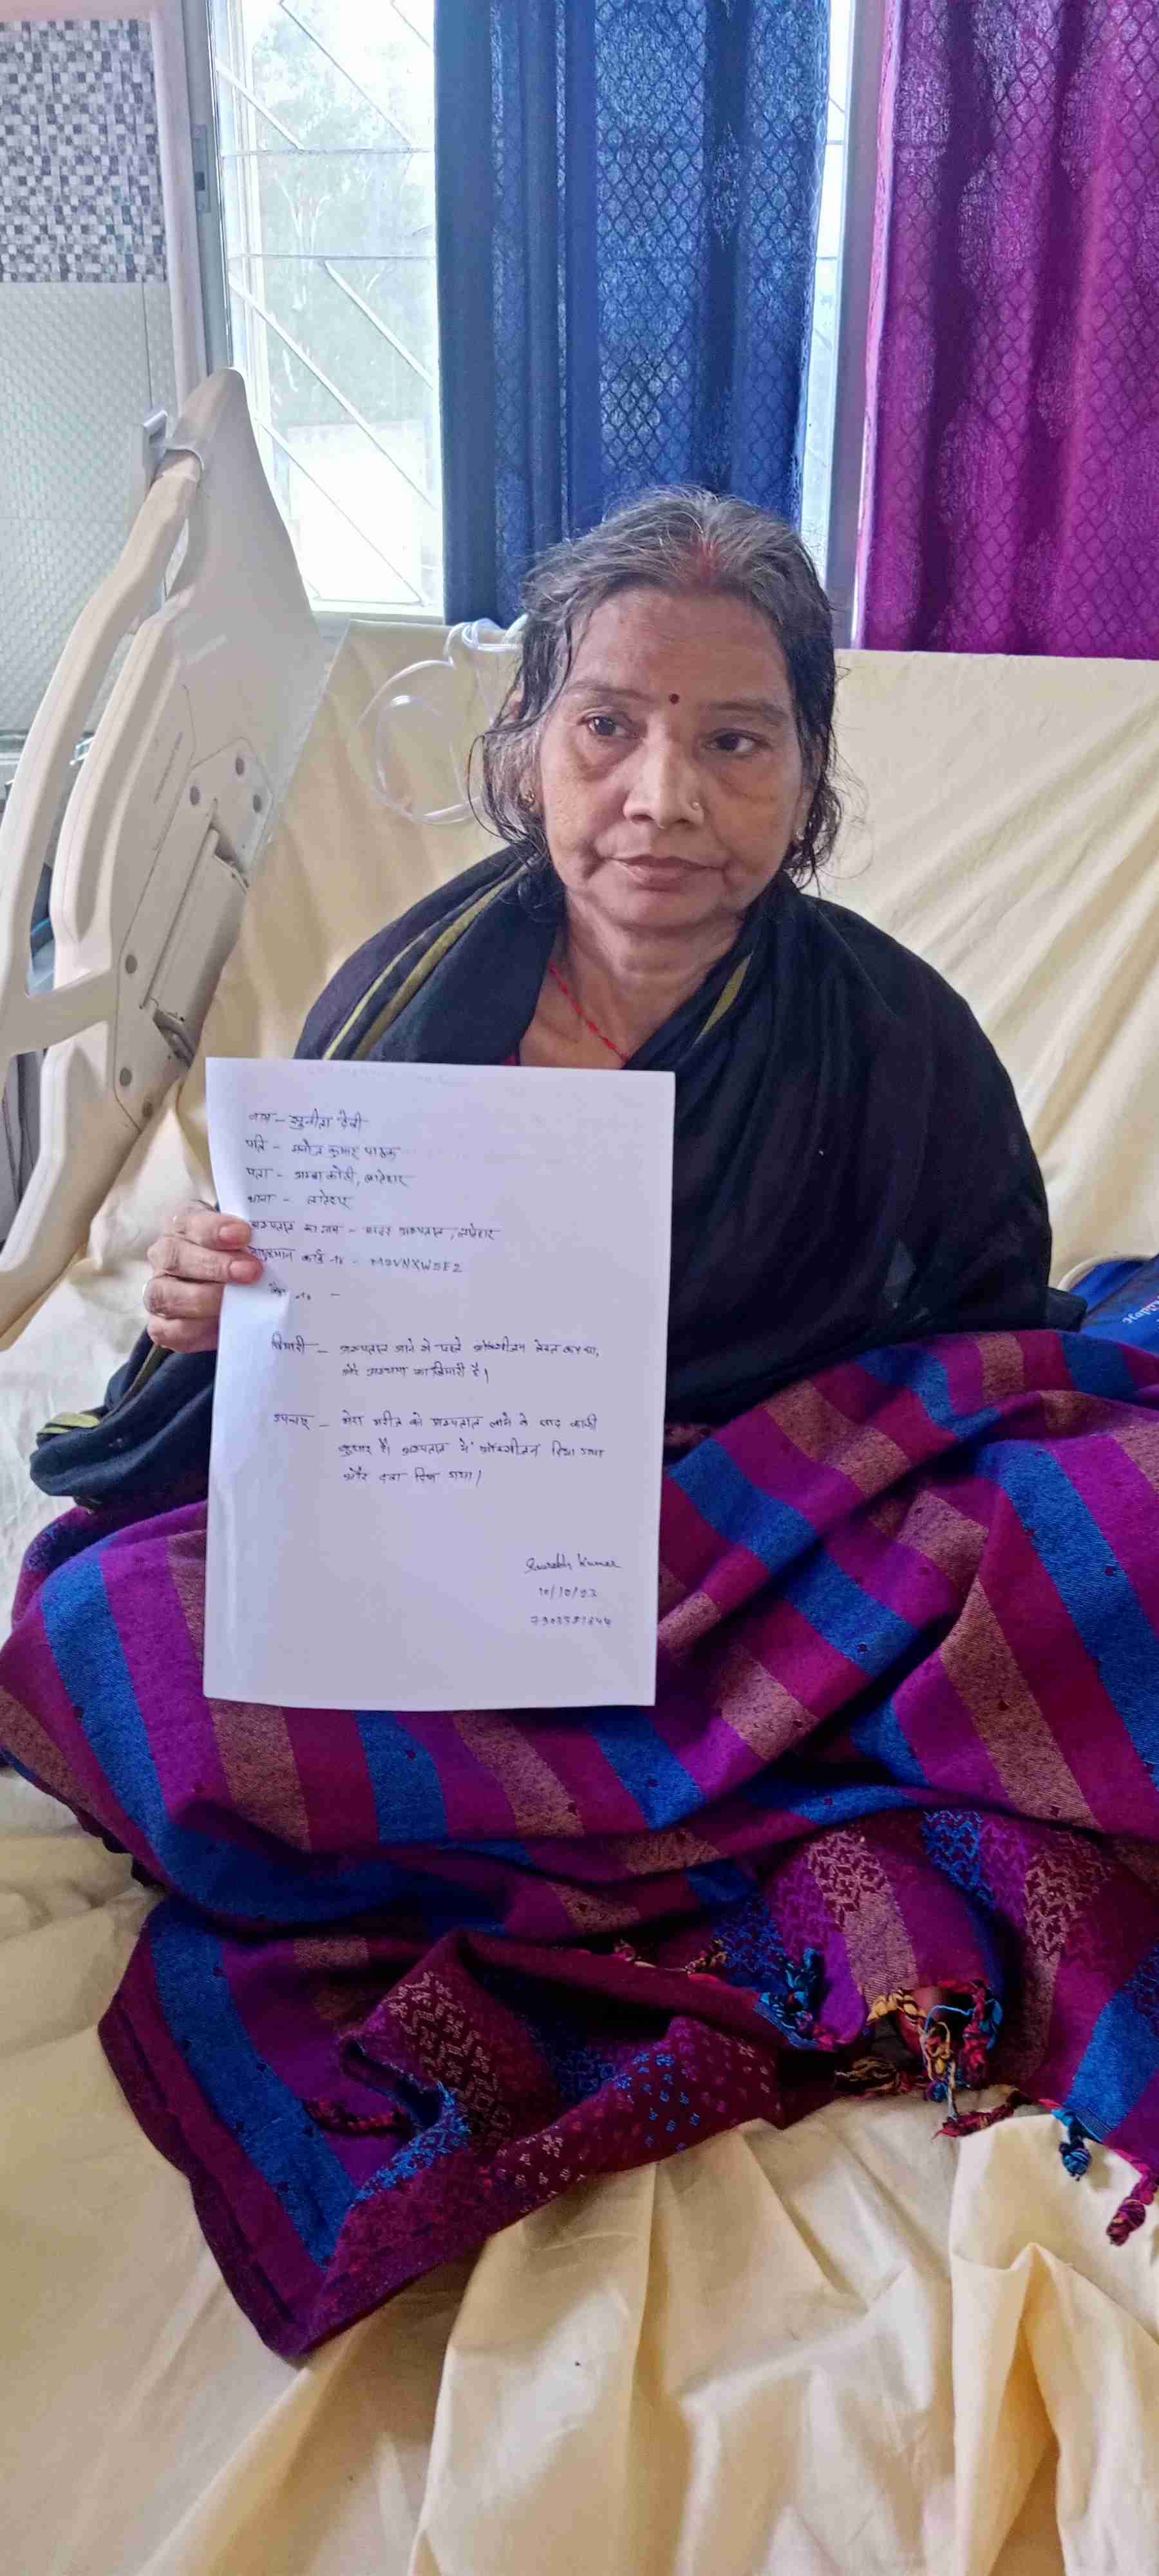 नाम - सुनीता देवी
पति - मनोज कुमार पाठक
पता - अम्बाकोठी, लातेहार
थाना - लातेहार
अस्पताल का नाम - सदर अस्पताल, लातेहार
आयुष्मान कार्ड no - M9VNXW5F2
no -
बिमारी - अस्पताल आने से पहले ऑक्सीजन लेवल कम था,
और अस्थमा का बिमारी है।
उपचार - मेरा मरीज को अस्पताल लाने के बाद काफी
सुधार है। अस्पताल में ऑक्सीजन दिया गया
और दवा दिया गया।
Saurabh Kumar
10/10/23
Happy